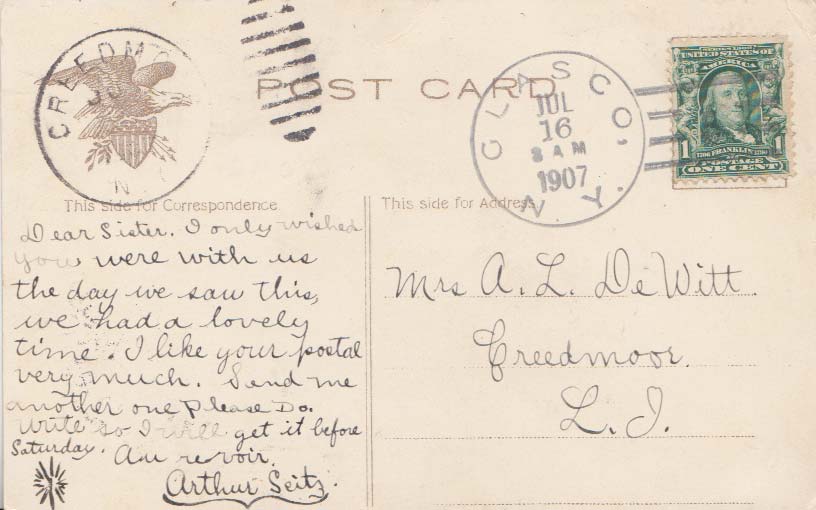 CREEDMO
N.
POST CARD
GLASCO, N.Y.
JUL
16
8 AM
1907
SERIES 1902
UNITED STATES OF
AMERICA
1 1706 FRANKLIN 1790 1
POSTAGE
ONE CENT
This side for Correspondence
This side for Address.
Dear Sister. I only wished
you were with us
the day we saw this,
we had a lovely
time. I like your postal
very much. Send me
another one Please Do.
Write so I will get it before
Saturday. Au revoir.
Arthur Seitz.
Mrs A. L. DeWitt.
Creedmoor.
L. I.